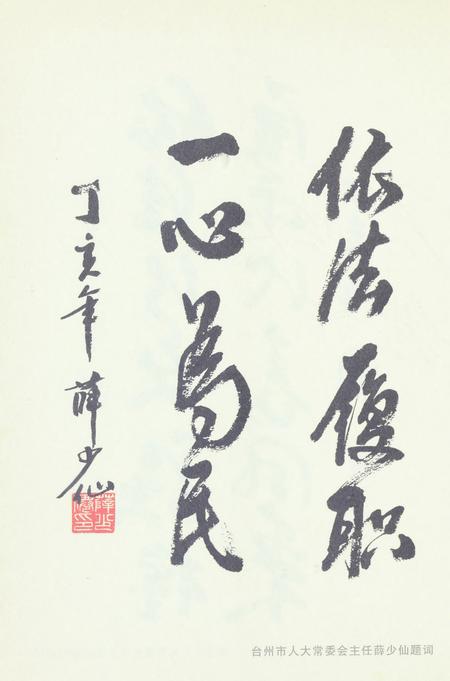 依法履职
一心为民
丁亥年 薛少仙
台州市人大常委会主任薛少仙题词